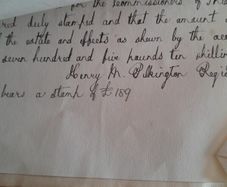 for the Commissioners of
red duly stamped and that the amount
the estate and effects as shewn by the
seven hundred and five pounds ten shilling
Henry M. Pilkington Regi
bears a stamp of £189